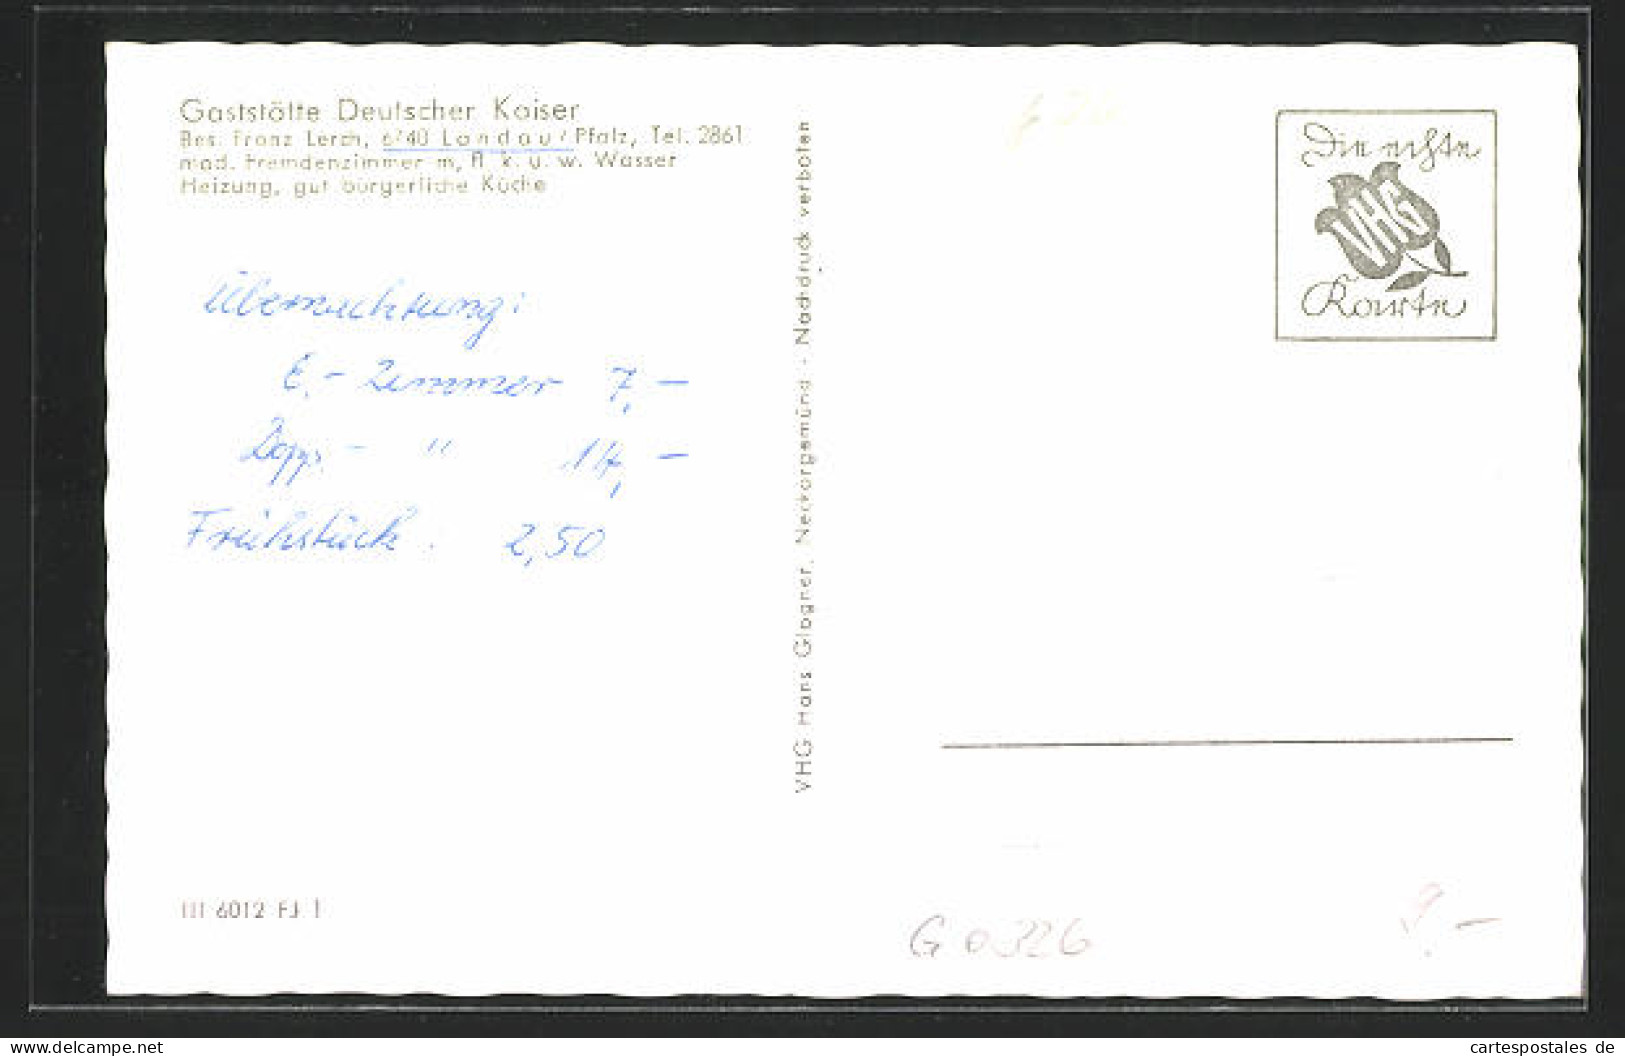 Gaststätte Deutscher Kaiser
Bes. Franz Lerch, 6740 Landau/Pfalz, Tel. 2861
mod. Fremdenzimmer m, fl. k. u. w. Wasser
Heizung, gut bürgerliche Küche
Übernachtung:
E.- Zimmer 7,-
Dopp. - " 14,-
Frühstück. 2,50
III 6012 FJ 1
VHG Hans Glogner, Neckargemünd - Nachdruck verboten
Die echte
VHG
Karte
G 0326
9,-
www.delcampe.net
cartespostales de